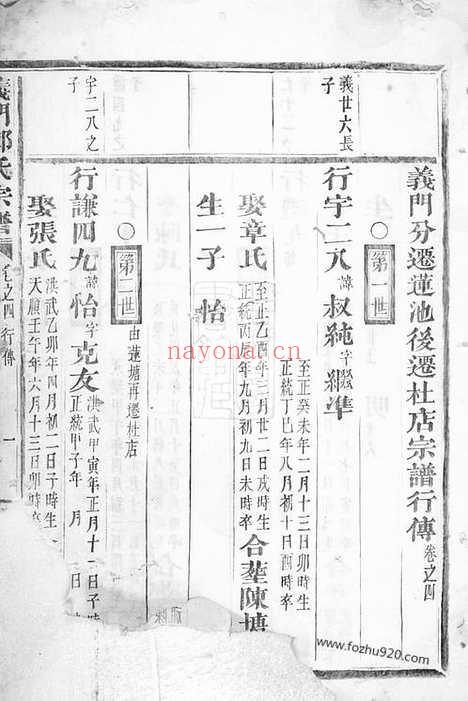 義門分遷蓮池後遷杜店宗譜行傳 卷之四
○ 第一世
義世六長子
行宇二八 諱 叔純 字 繼準
至正癸未年二月十三日卯時生
正統丁巳年八月初十日酉時卒
娶章氏 至正乙酉年三月廿二日戌時生
正統丙辰年九月初九日未時卒 合塟陳塘
生一子 怡
○ 第二世 由蓮塘再遷杜店
宇二八之子
行謙四九 諱 怡 字 克友 洪武甲寅年正月十一日子時
正統甲子年 月 日
娶張氏 洪武乙卯年四月初二日子時生
天順壬午年六月十三日卯時卒
義門鄭氏宗譜 卷之四 行傳 一
nayona.cn
www.fozhu920.com